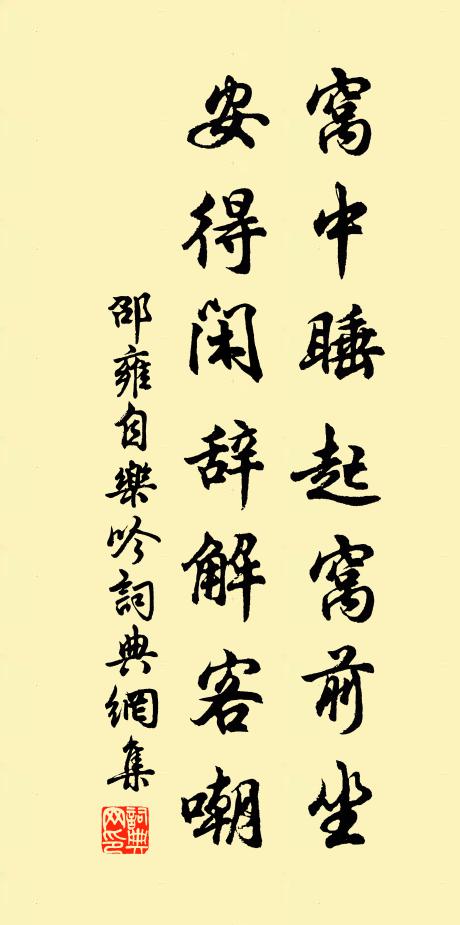 窩中睡起窩前坐
安得閑辞解客嘲
邵雍自樂吟詞典網集
詞典网印